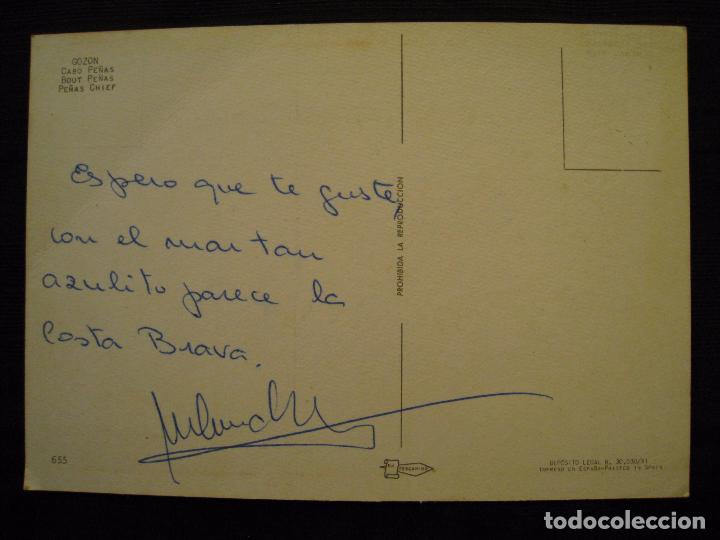 GOZON
CABO PEÑAS
BOUT PEÑAS
PEÑAS CHIEF
Espero que te guste,
con el mar tan
azulito parece la
Costa Brava.
PROHIBIDA LA REPRODUCCION
655
DEPÓSITO LEGAL B.
IMPRESO EN ESPAÑA-PRINTED IN SPAIN
todocoleccion.net